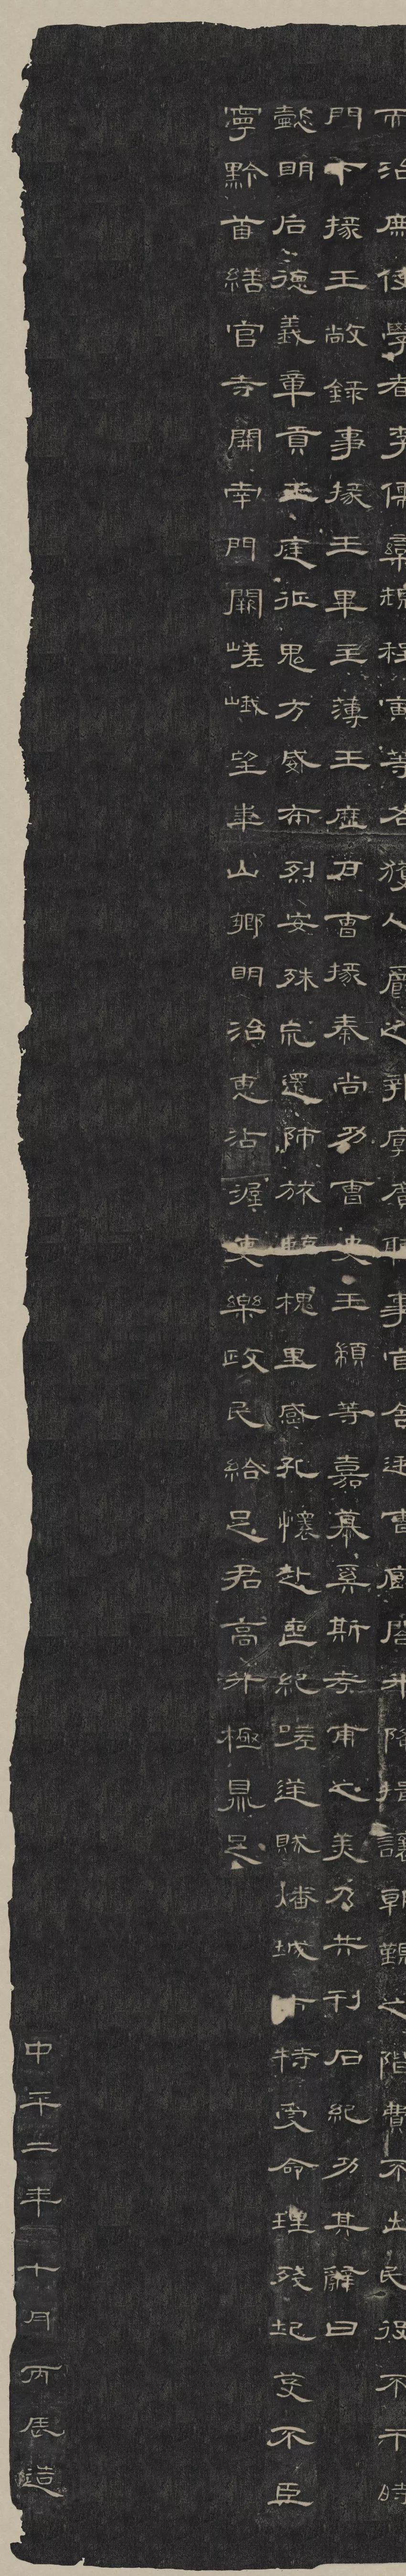 而治庶使學者李儒欒規程寅等各獲人爵之報廓廣聽事官舍廷曹廊閣升降揖讓朝覲之階費不出民役不干時
門下掾王敞錄事掾王畢主薄王歷戶曹掾秦尚功曹史王顓等嘉慕奚斯考甫之美乃共刊石紀功其辭曰
懿明后德義章貢王庭征鬼方威布烈安殊荒還師旅臨槐里感孔懷赴喪紀嗟逆賊燔城市特受命理殘圮芟不臣
寧黔首繕官寺開南門闕嵯峨望華山鄉明治惠沾渥吏樂政民給足君高升極鼎足
中平二年十月丙辰造